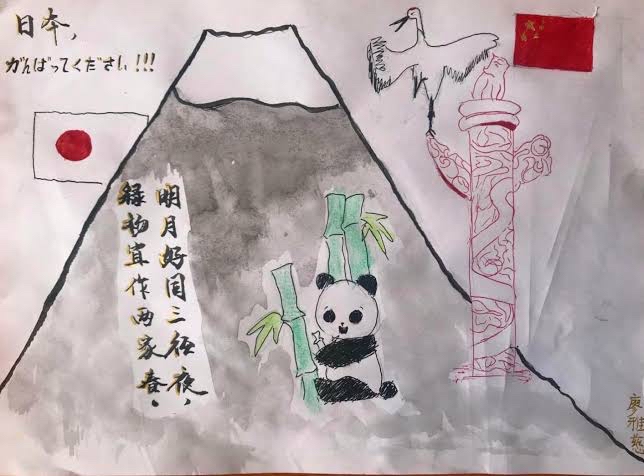 日本，
がんばってください!!!
明月好同三径夜，
绿杨宜作两家春。